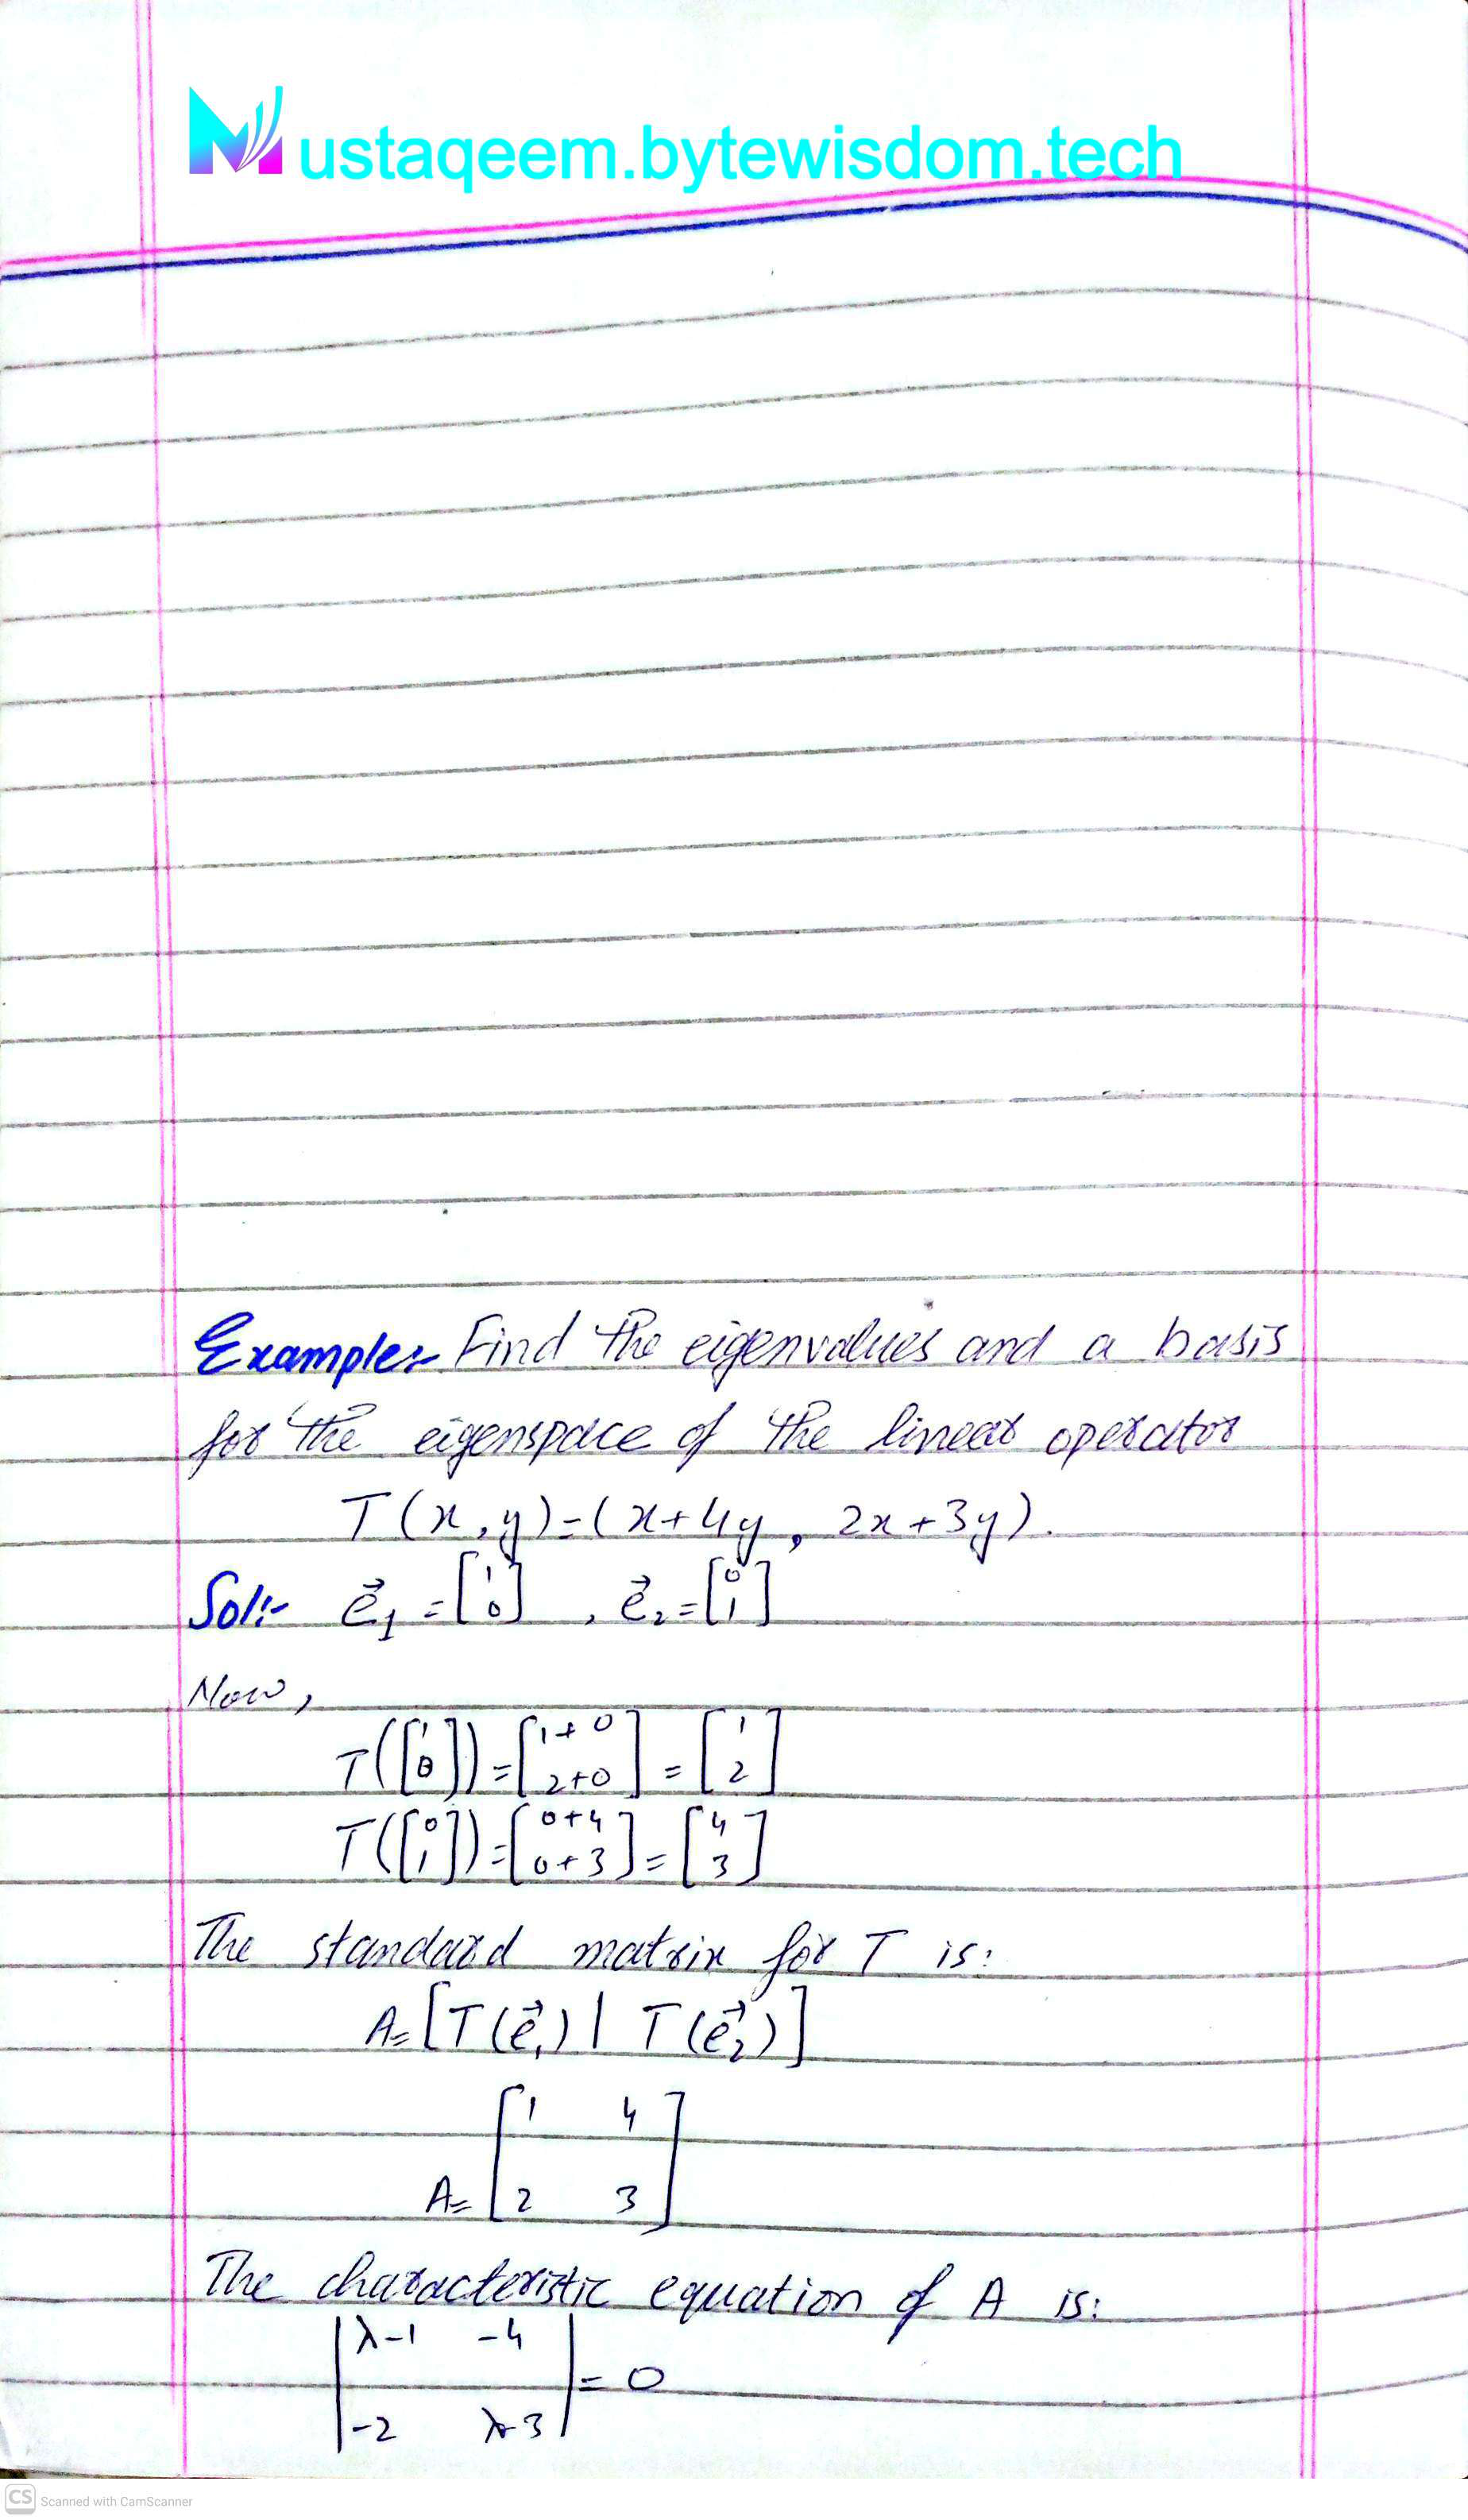 Mustaqeem.bytewisdom.tech
Example:- Find the eigenvalues and a basis
for the eigenspace of the linear operator
T(x,y)=(x+4y, 2x+3y).
Sol:- e⃗₁ = [1 0], e⃗₂ = [0 1]
Now,
T([1 0]) = [1+0 2+0] = [1 2]
T([0 1]) = [0+4 0+3] = [4 3]
The standard matrix for T is:
A = [T(e⃗₁) | T(e⃗₂)]
A = [1 4 2 3]
The characteristic equation of A is:
|λ-1 -4 -2 λ-3| = 0
CS Scanned with CamScanner